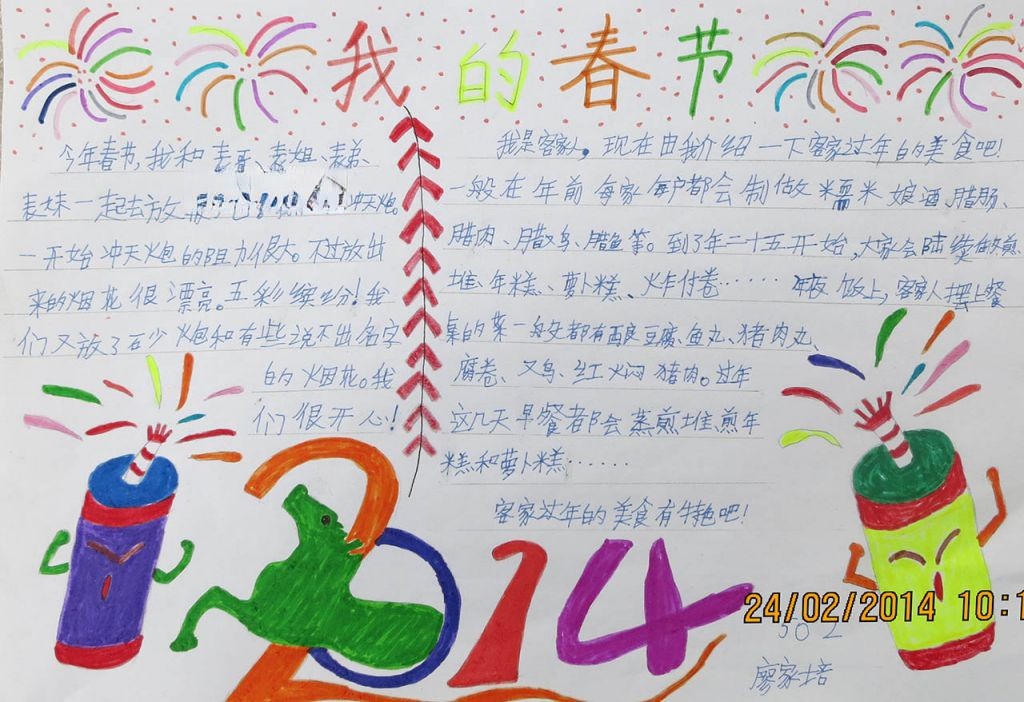 我的春节
今年春节,我和表哥、表姐、表弟、
表妹一起去放 冲天炮。
一开始冲天炮的阻力很大。不过放出
来的烟花很漂亮。五彩缤纷!我
们又放了石少炮和有些说不出名字
的烟花。我
们很开心!
我是客家人,现在由我介绍一下客家过年的美食吧!
一般在年前每家每户都会制做糯米娘酒、腊肠、
腊肉、腊鸡、腊鱼等。到了年二十五开始,大家会陆续做煎
堆、年糕、萝卜糕、炸付卷…… 年夜饭上,客家人摆上餐
桌的菜一般都有酿豆腐、鱼丸、猪肉丸、
腐卷、鸡、红火闷猪肉。过年
这几天早餐都会蒸煎堆、煎年
糕和萝卜糕……
客家过年的美食有特色吧!
2014
24/02/2014 10:1
502
廖家培